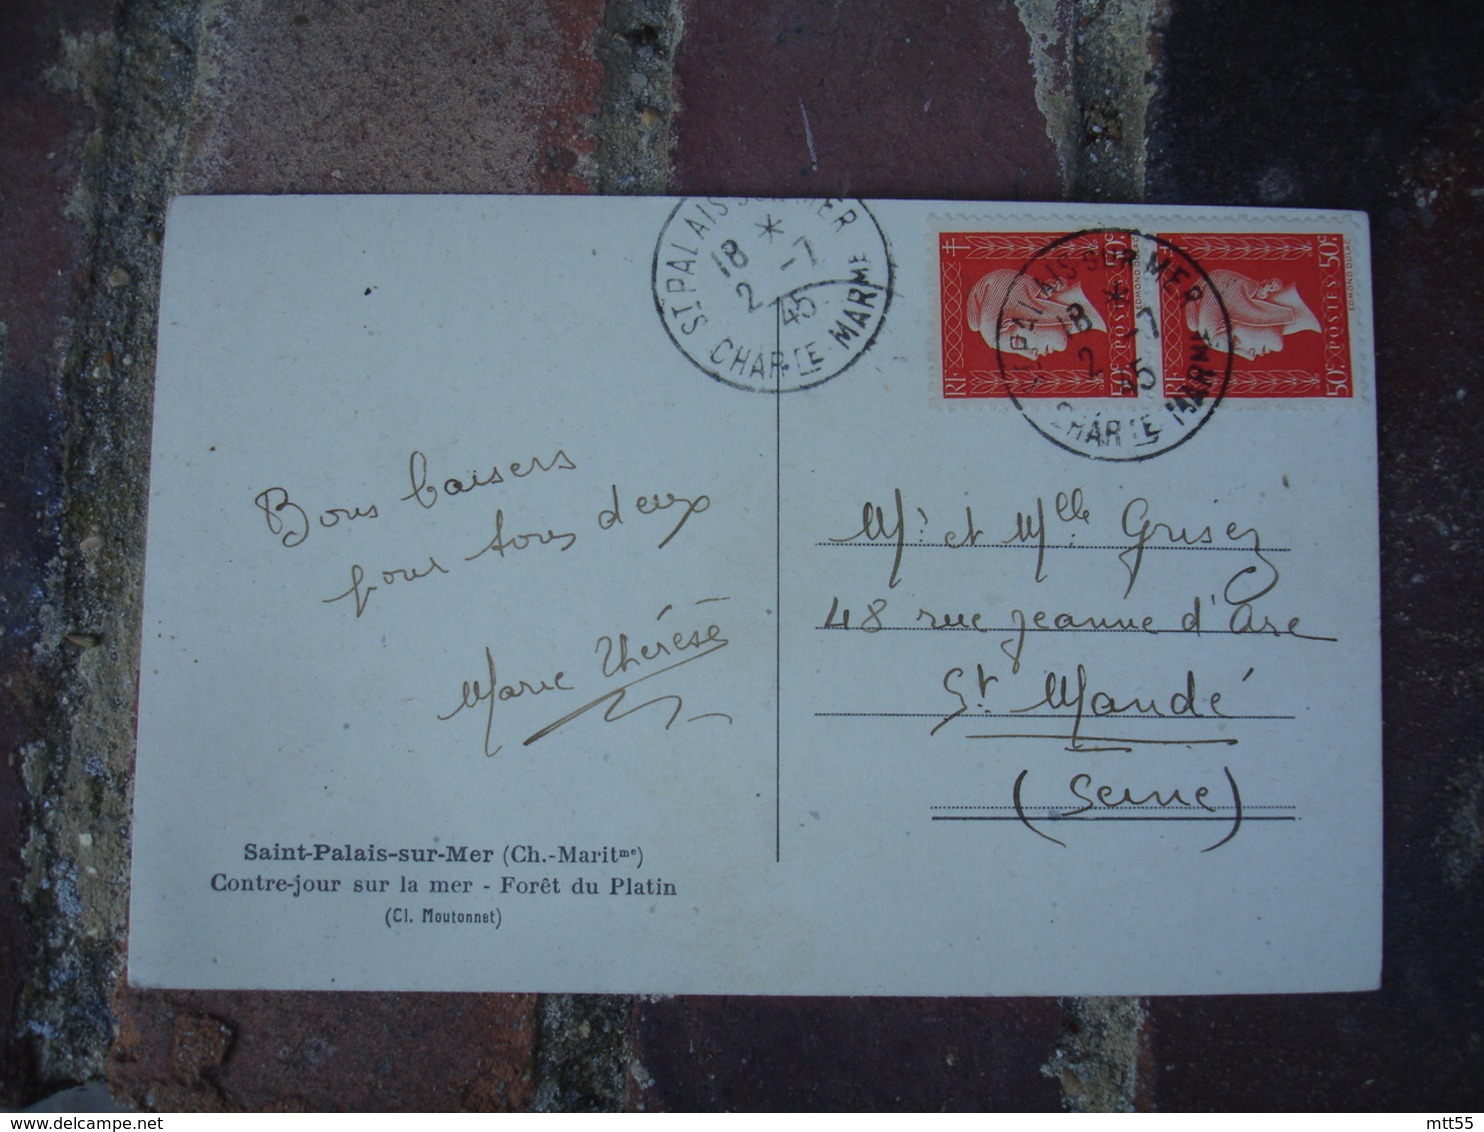 ST PALAIS SUR MER
18 * -7
2 45
CHAR.TE MARME
RF 50c POSTES 50c
EDMOND DULAC
RF 50c POSTES 50c
EDMOND DULAC
ST PALAIS-SUR MER
18 * -7
2 45
CHAR TE MARME
Bons baisers
pour tous deux
Marie Thérèse
Mr et Mlle Grisez
48 rue Jeanne d'Arc
St. Mandé
(Seine)
Saint-Palais-sur-Mer (Ch.-Maritme)
Contre-jour sur la mer - Forêt du Platin
(Cl. Moutonnet)
mtt55